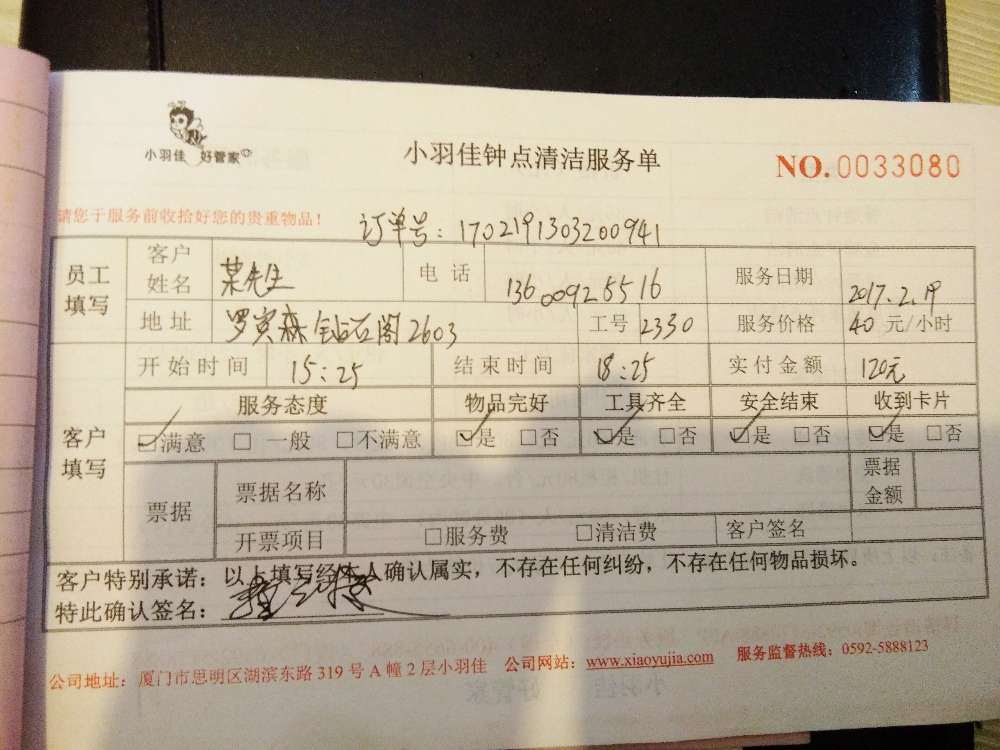 小羽佳 好管家
小羽佳钟点清洁服务单
NO.0033080
请您于服务前收拾好您的贵重物品！
订单号：1702191303200941
员工填写 客户姓名 某先生 电话 13600925516 服务日期 2017.2.19
地址 罗宾森钻石阁2603 工号 2330 服务价格 40元/小时
客户填写 开始时间 15:25 结束时间 18:25 实付金额 120元
服务态度 物品完好 工具齐全 安全结束 收到卡片
☑满意 □一般 □不满意 ☑是 □否 ☑是 □否 ☑是 □否 ☑是 □否
票据 票据名称 票据金额
开票项目 □服务费 □清洁费 客户签名
客户特别承诺：以上填写经本人确认属实，不存在任何纠纷，不存在任何物品损坏。
特此确认签名：
公司地址：厦门市思明区湖滨东路319号A幢2层小羽佳 公司网站：www.xiaoyujia.com 服务监督热线：0592-5888123